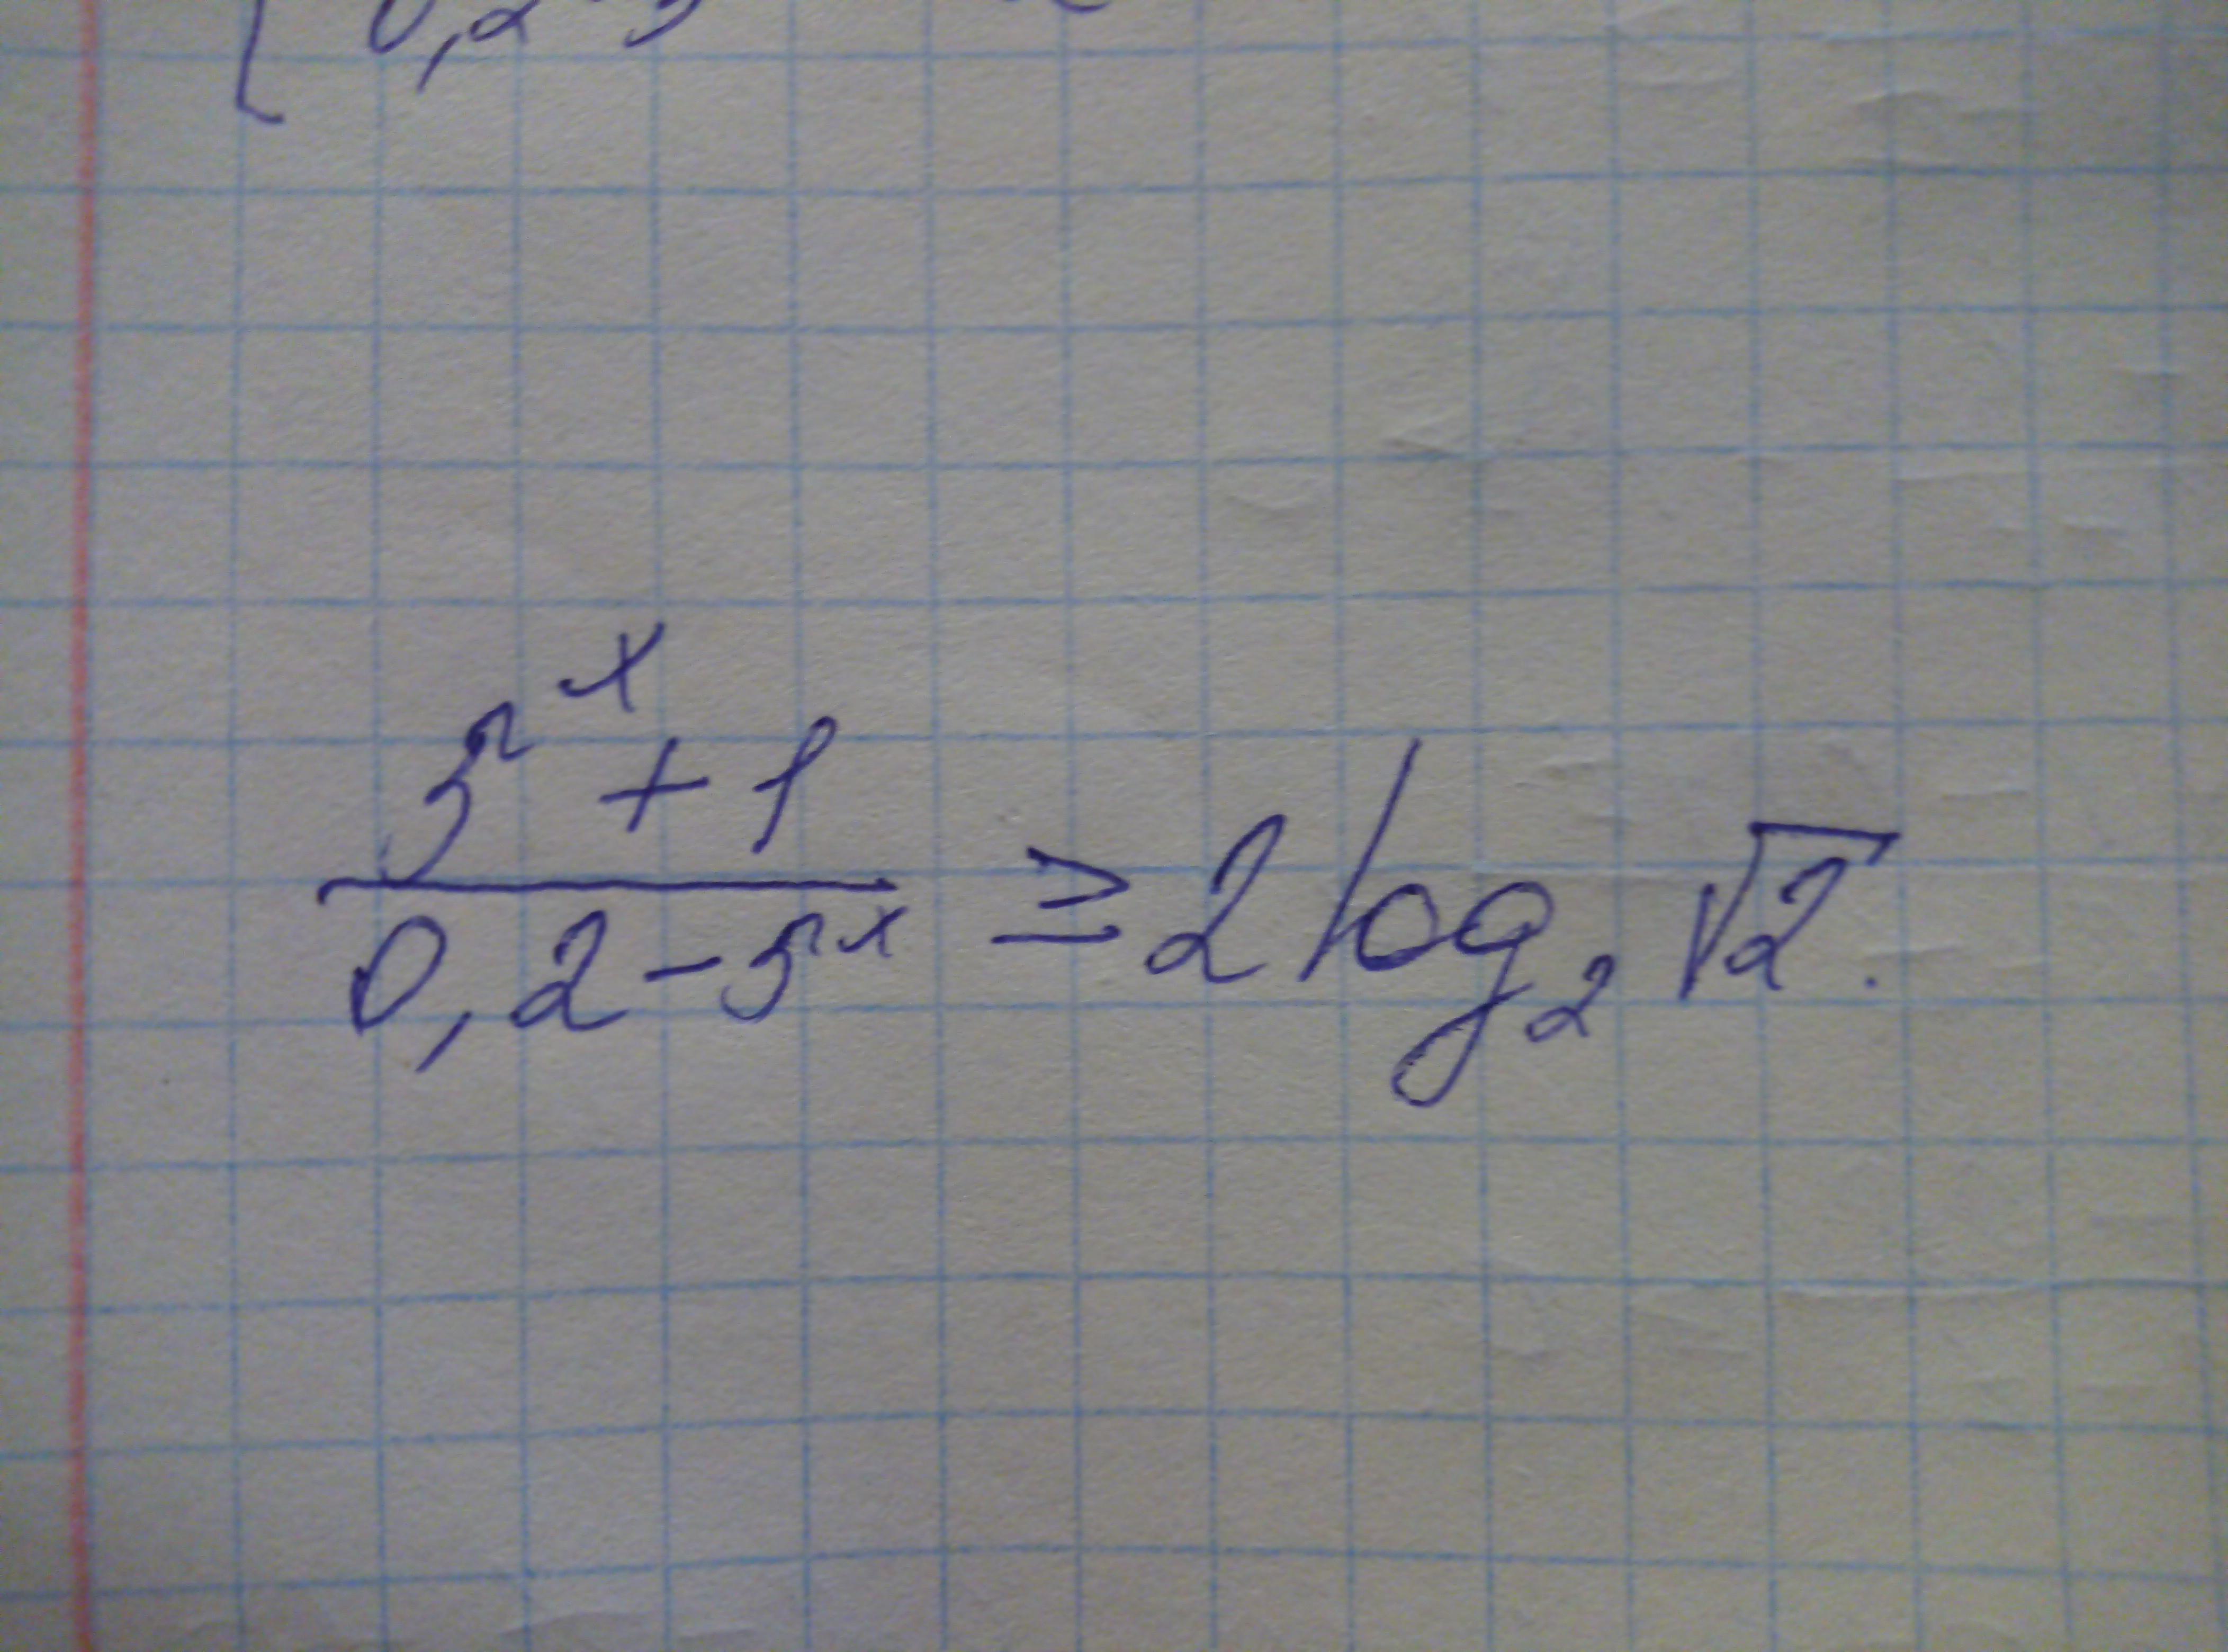 0,2
5^x + 1
0,2 - 5^x ≥ 2 log_2 √2.